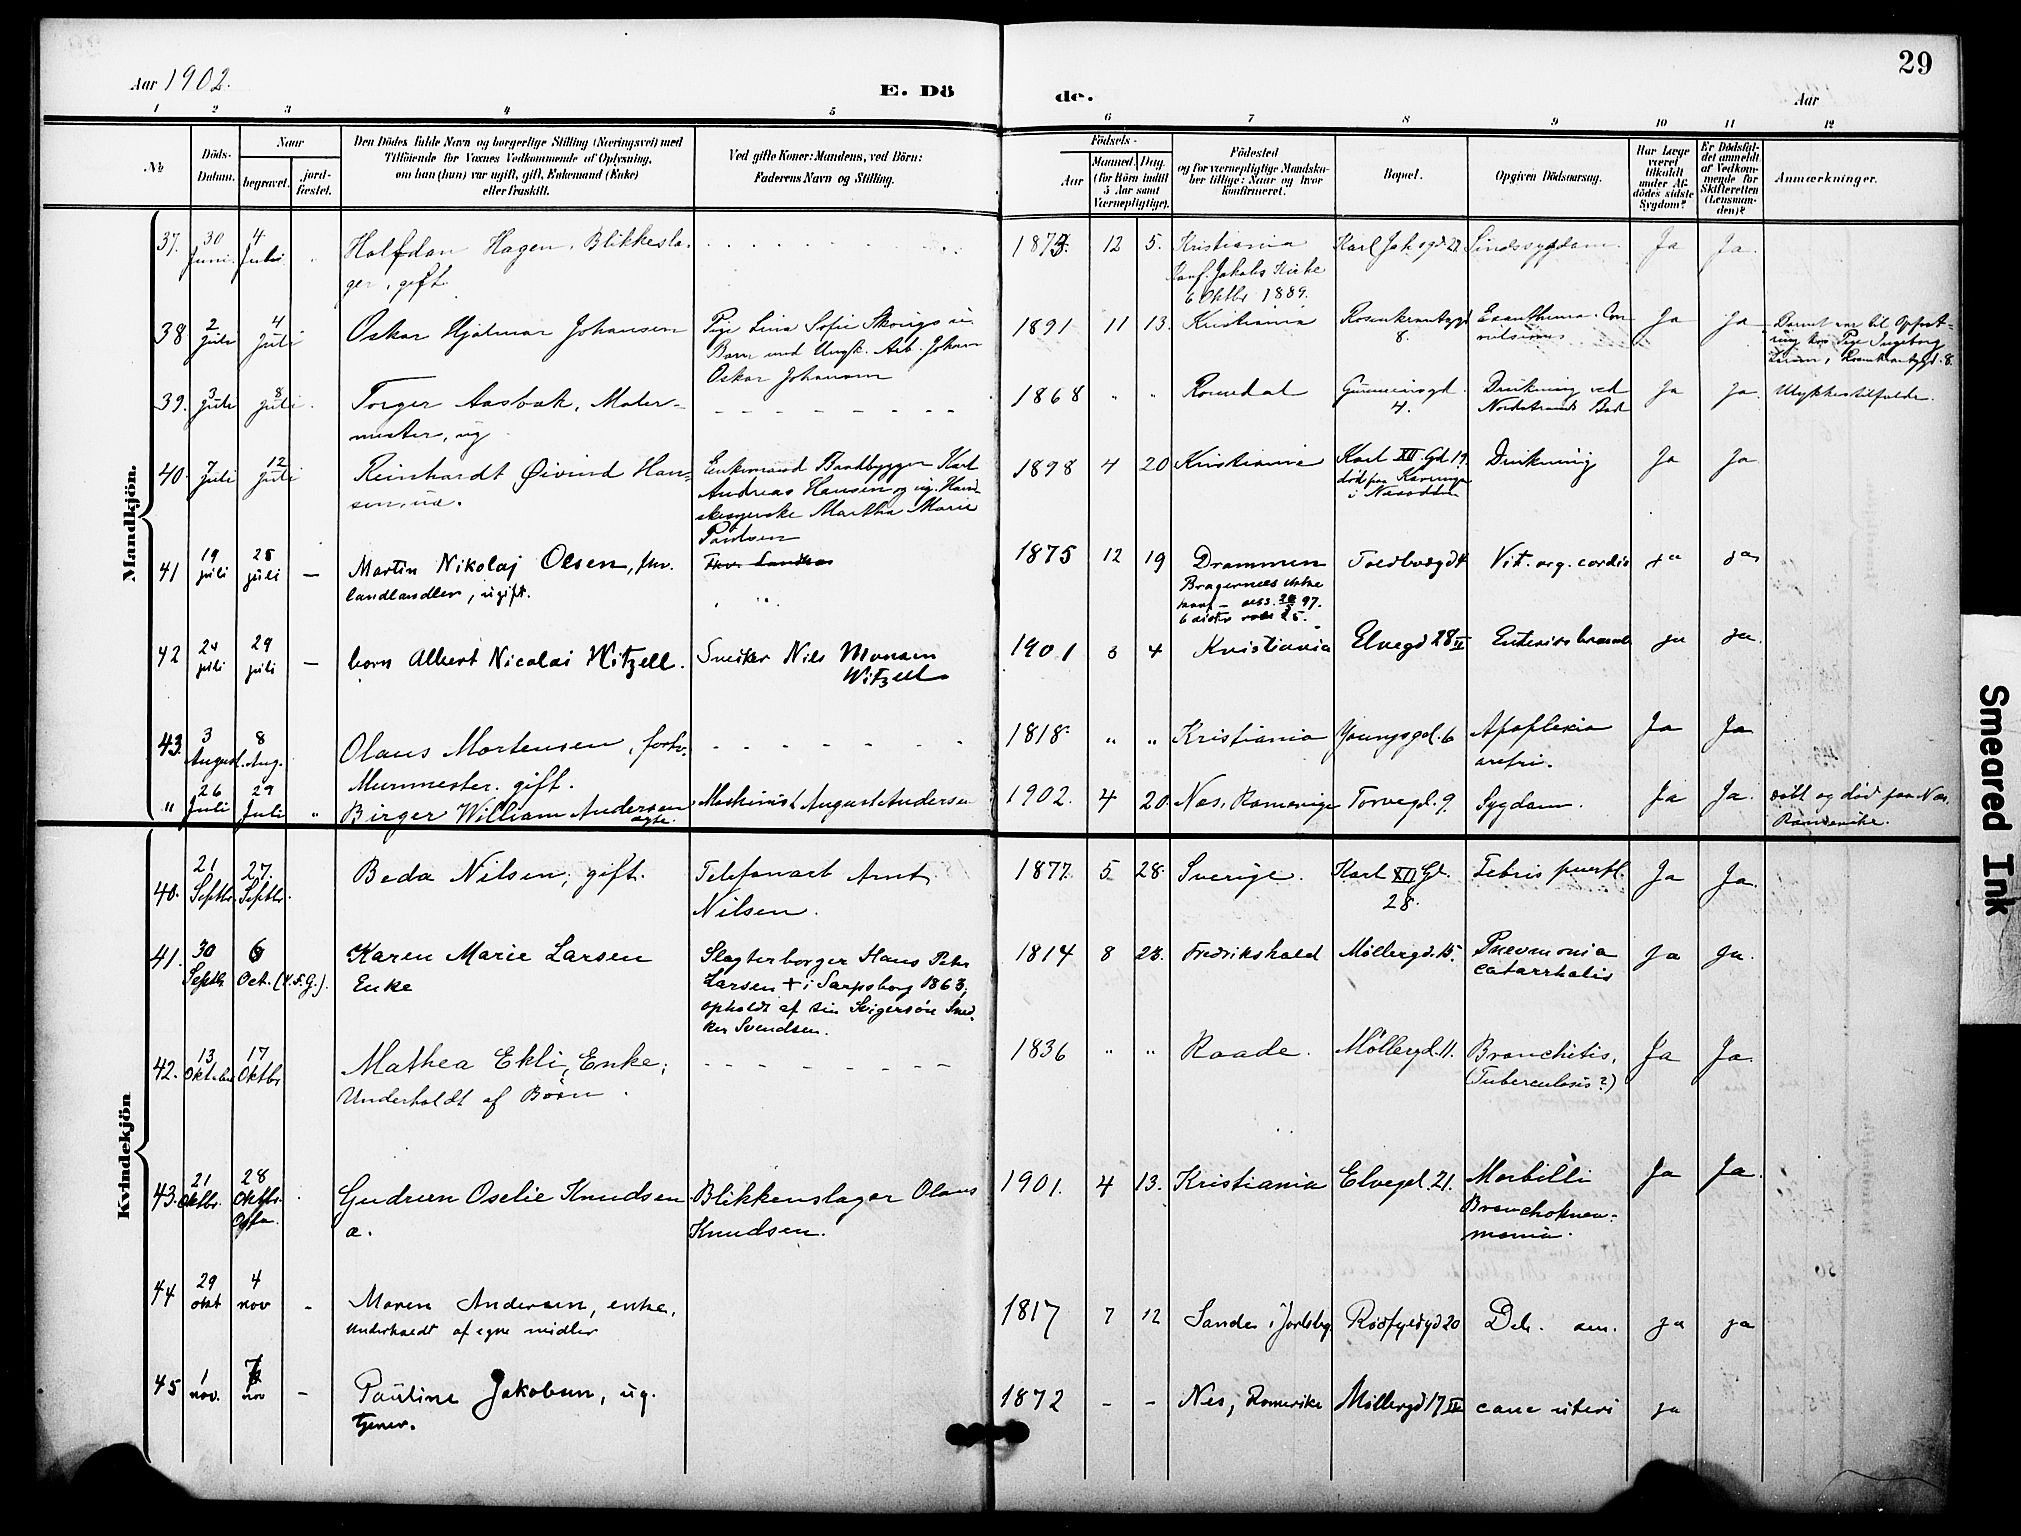 29
Aar 1902.
E. Dö
de.
Aar
1 2 3 4 5 6 7 8 9 10 11 12
No
Döds-Datum.
Naar
begravet.
jord-fæstet.
Den Dödes fulde Navn og borgerlige Stilling (Næringsvei) med
Tilföiende for Voxnes Vedkommende af Oplysning,
om han (hun) var ugift, gift, Enkemand (Enke)
eller fraskilt.
Ved gifte Koner: Mandens, ved Börn:
Faderens Navn og Stilling.
Födsels-
Aar
Maaned. Dag.
(for Börn indtil
5 Aar samt
Værnepligtige).
Födested
og for værnepligtige Mandskaber tillige: Naar og hvor
konfirmeret.
Bopæl.
Opgiven Dödsaarsag.
Har Læge
været
tilkaldt
under Afdödes sidste
Sygdom?
Er Dödsfaldet anmeldt
af Vedkommende for
Skifteretten
(Lensmanden)?
Anmærkninger.
Mandkjön.
37. 30 Juni 4 Juli Halfdan Hagen, Blikkesla- 1873. 12 5. Kristiania Karl Joh. gd. 21. Sindssygdom. Ja Ja
ger, gift. Konf. Jakobs Kirke
6 Oktbr 1889.
38 2 Juli 4 Juli Oskar Hjalmar Johansen Pige Lina Sofie 1891 11 13. Kristiania 8. Ja Ja
Barn med Ungk. Arb. Johan
Oskar Johansen
39. 3 Juli 8 Juli Torger Aasbak, Maler- 1868 " " Romedal 4. Drukning ved Ja Ja Ulykkestilfælde.
mester, ug Nordstrands Bad
40. 7 Juli 12 Juli Reinhardt Øivind Han- Enkemand Baadbygger Karl 1898 4 20 Kristiania Karl XII Gd 19. Drukning Ja Ja
sen, ua. Andreas Hansen og ug. Hand-
skesyerske Martha Marie
Paulsen
41 19 juli 25 juli — Martin Nikolaj Olsen, fhv. 1875 12 19 Drammen Vit. org. cordis ja ja
landhandler, ugift. Bragernes kirke
42 24 juli 29 juli — barn Albert Nicolai Witzell. Snekker Nils Monsen 1901 4 Kristiania Elvegd 28 II ja ja
Witzell
43. 3 August. 8 Aug. Olaus Mortensen, forhv. 1818. " " Kristiania Youngsgd. 6 Apoplexia Ja Ja
Murmester. gift. cerebri.
" 26 Juli 29 Juli " Birger William Andersen Maskinist August Andersen 1902. 4 20. Næs, Romerige Torvegd. 9. Sygdom. Ja Ja. født og død paa Næs.
ægte. Romerike.
Kvindekjön
40. 21 Septbr. 27. Septbr. Beda Nilsen, gift. Telefonarb Arnt 1877. 5 28. Sverige. Karl XII Gd. Febris puerp. Ja Ja.
Nilsen. 28.
41. 30 Septbr 6 Oct. (V.F.G.). Karen Marie Larsen Slagterborger Hans Peter 1814 8 23. Fredrikshald Møllergd. 15. Pneumonia ja ja.
Enke Larsen + i Sarpsborg 1863, catarrhalis
opholdt af sin Svigersøn Sned-
ker Svendsen.
42. 13 Oktober 17 Oktbr Mathea Ekli, Enke; 1836 " " Raade. Møllergd. 11. Bronchitis, Ja Ja.
Underholdt af Børn. (Tuberculosis?)
43. 21 Oktbr. 28 Oktbr. Gudrun Oselie Knudsen Blikkenslager Olaus 1901. 4 13. Kristiania Elvegd. 21. Morbilli Ja Ja.
a. Knudsen. Bronchopneu-
monia.
44 29 okt 4 nov - Maren Andersen, enke, 1817 7 12 Sande i Jarlsbg. 20 Deb. sen. ja ja
Underholdt af egne midler
45 1 nov. 7 nov - Pauline Jakobsen, ug. 1872 - - Nes, Romerike Møllergd 17 II canc uteri ja
tjener.
Smeared Ink